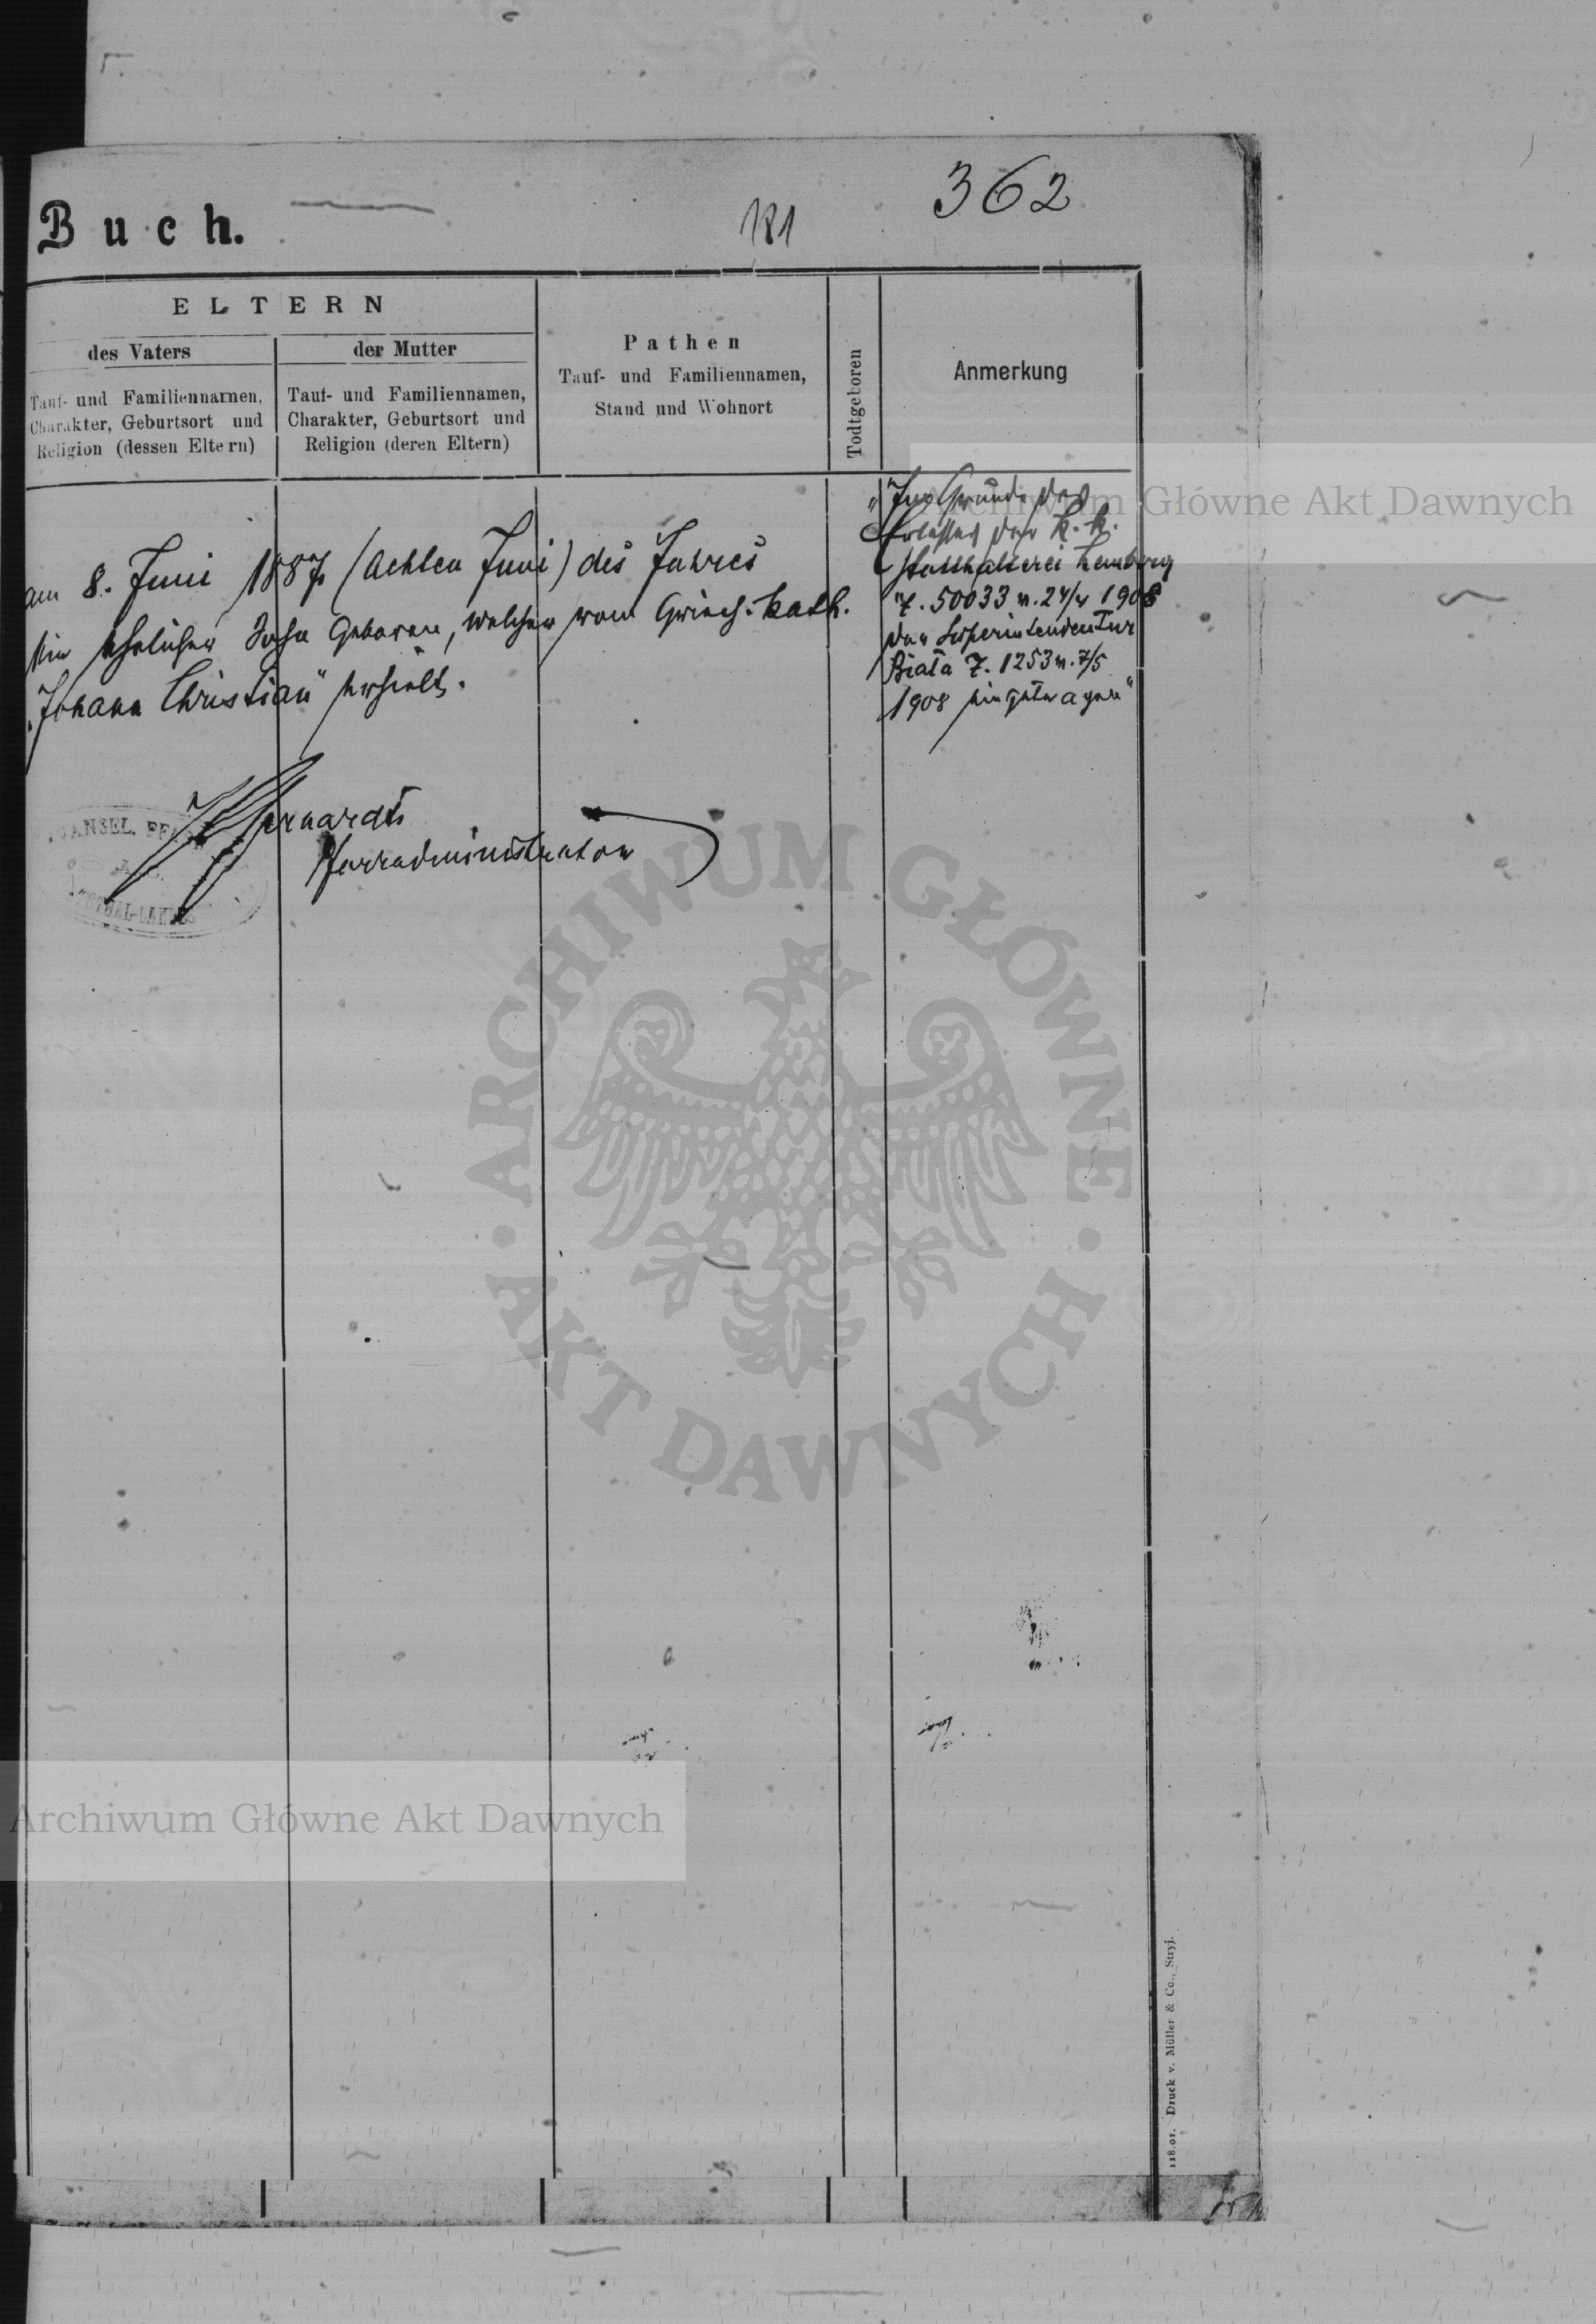 362
181
Buch.
ELTERN
des Vaters
der Mutter
Tauf- und Familiennamen,
Charakter, Geburtsort und
Religion (dessen Eltern)
Tauf- und Familiennamen,
Charakter, Geburtsort und
Religion (deren Eltern)
Pathen
Tauf- und Familiennamen,
Stand und Wohnort
Todtgeboren
Anmerkung
am 8. Juni 1887 (Achten Juni) des Jahres
ein ehelicher Sohn geboren, welcher vom Griech. kath.
"Johann Christian" erhielt.
Pfarradministrator
"Im Grunde des
Erlasses der k. k.
Statthalterei Lemberg
Z. 50033 v. 24/4 1908
der Superintendentur
Biała Z. 1253 v. 7/5
1908 eingetragen"
Archiwum Główne Akt Dawnych
ARCHIWUM GŁÓWNE
AKT DAWNYCH
Archiwum Główne Akt Dawnych
118.01. Druck v. Müller & Co., Stryj.